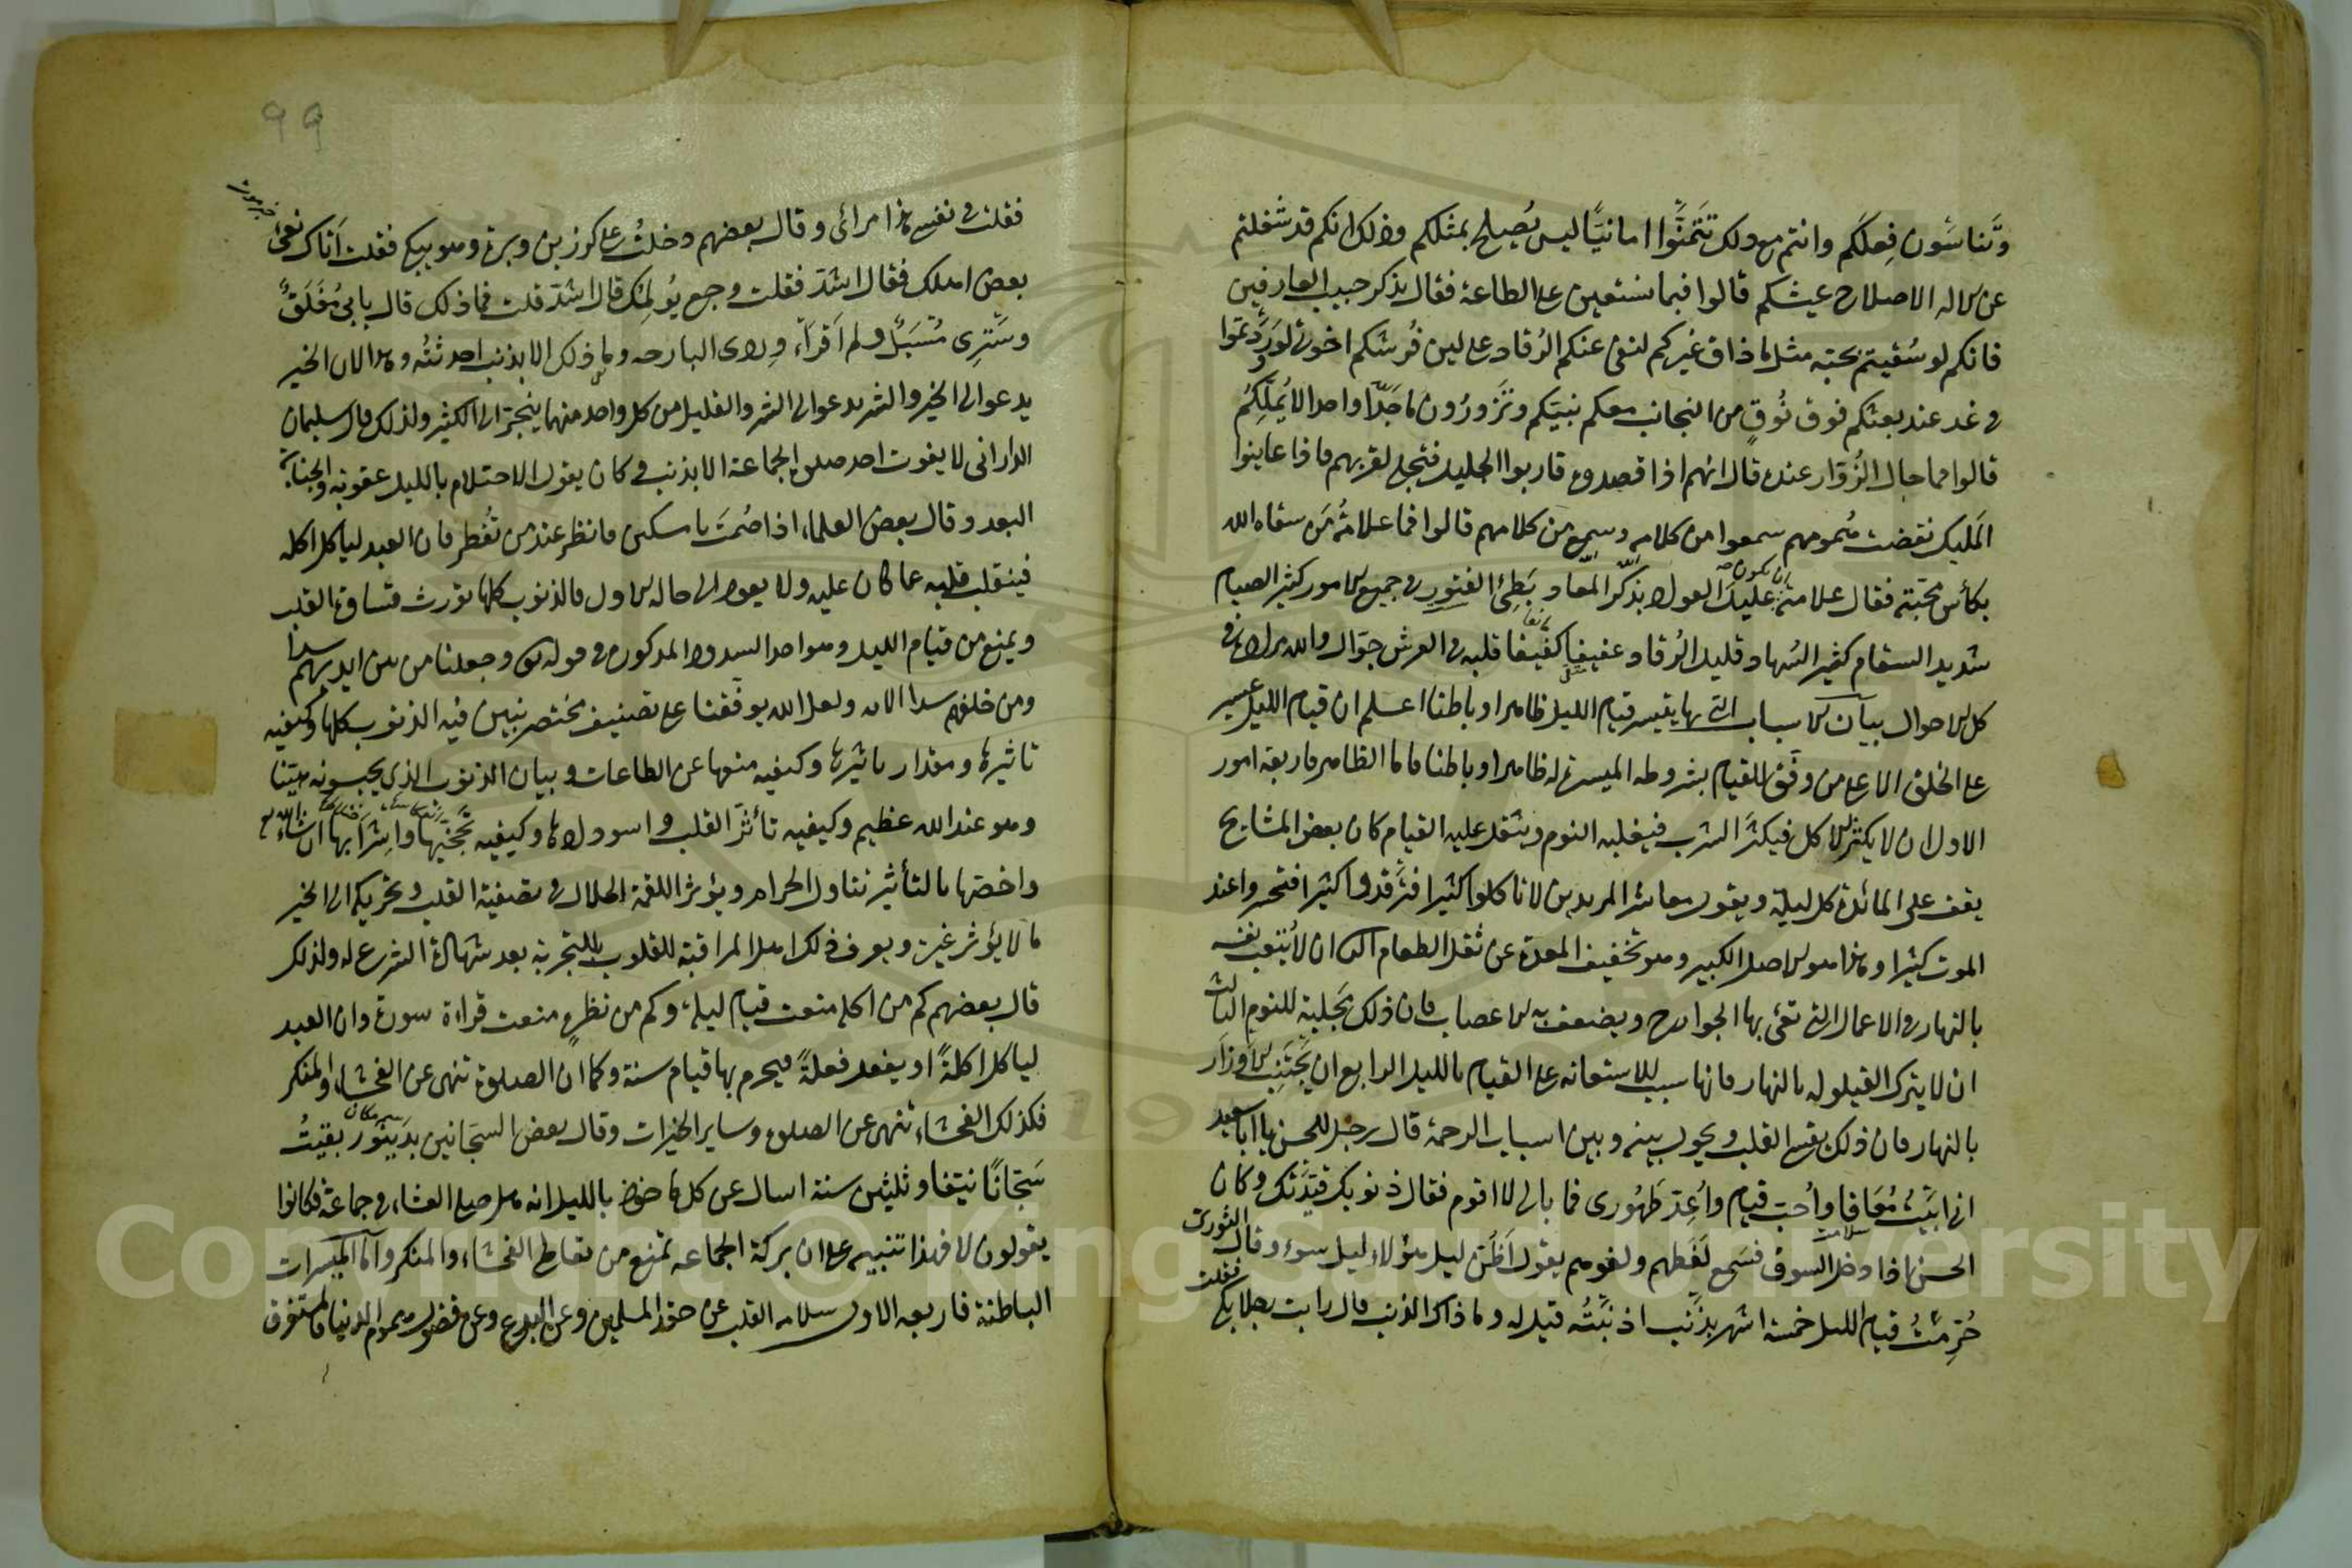 وتناسون فعلكم وانتم مع ذلك تتمنوا امانيا ليس يصلح بمثلكم وذلك انكم قد شغلتم
عن الاصلاح عيشكم قالوا فبما نستعين على الطاعة فقال بذكر حبيب العارفين
فانكم لو سقيتم محبته مثل ما ذاق غيركم لنفى عنكم الرقاد على لين فرشكم
فى غد عند بعثكم فوق نوق من النجائب معكم نبيكم وتزورون ماجدا واحدا
قالوا فما حال الزوار عنده قال انهم اذا قصدوه قاربوا الجليل فتجلى لقربهم فاذا عاينوا
المليك نقضت همومهم سمعوا من كلامه وسمع من كلامهم قالوا فما علامة من سقاه الله
بكأس محبته فقال علامته ان يكون عليل الفؤاد بذكر المعاد بطئ الفتور فى جميع الامور كثير الصيام
شديد السقام كثير السهاد قليل الرقاد عفيفا كفيفا قلبه فى العرش جوال والله مراده فى
كل الاحوال بيان الاسباب التى بها يتيسر قيام الليل ظاهرا وباطنا اعلم ان قيام الليل عسير
على الخلق الا على من وفق للقيام بشروطه الميسرة له ظاهرا وباطنا فاما الظاهر فاربعة امور
الاول ان لا يكثر الاكل فيكثر الشرب فيغلبه النوم ويثقل عليه القيام كان بعض المشايخ
يقف على المائدة كل ليلة ويقول معاشر المريدين لا تاكلوا كثيرا فترقدوا كثيرا فتحسروا عند
الموت كثيرا وهذا هو الاصل الكبير وهو تخفيف المعدة عن ثقل الطعام الثانى ان لا يتعب نفسه
بالنهار فى الاعمال التى تعى بها الجوارح ويضعف به الاعصاب فان ذلك مجلبة للنوم الثالث
ان لا يترك القيلوله بالنهار فانها سبب للاستعانه على القيام بالليل الرابع ان يجتنب الاوزار
بالنهار فان ذلك يقسى القلب ويحول بينه وبين اسباب الرحمة قال رجل للحسن يا ابا سعيد
انى ابيت معافا واحب قيام واعد طهورى فما بالى لا اقوم فقال ذنوبك قيدتك وكان
الحسن اذا دخل السوق فسمع لغطهم ولغوهم يقول اظن ليل هؤلاء ليل سوء وقال الثورى
حرمت قيام الليل خمسة اشهر بذنب اذنبته قيل له وما ذاك الذنب قال رايت رجلا يبكى
فقلت
فقلت فى نفسى هذا مرائى وقال بعضهم دخلت على كرز بن وبرة وهو يبكى فقلت اتاك نعى
بعض اهلك فقال اشد فقلت وجع يؤلمك قال اشد قلت فما ذلك قال بابى مغلق
وسترى مسبل ولم اقرأ وردى البارحه وما ذلك الا بذنب احدثته وهذا لان الخير
يدعو الى الخير والشر يدعو الى الشر والقليل من كل واحد منهما ينجر الى الكثير ولذلك قال سليمان
الدارانى لا يفوت احد صلوة الجماعة الا بذنب وكان يقول الاحتلام بالليل عقوبة والجنابة
البعد وقال بعض العلماء اذا صمت يا مسكين فانظر عند من تفطر فان العبد لياكل اكله
فينقلب قلبه عما كان عليه ولا يعود الى حاله الاول فالذنوب كلها تورث قساوة القلب
ويمنع من قيام الليل وهو احد السدود المذكورة فى قوله وجعلنا من بين ايديهم سدا
ومن خلفهم سدا الايه ولعل الله يوفقنا على تصنيف مختصر نبين فيه الذنوب كلها وكيفيه
تاثيرها ومقدار تاثيرها وكيفيه منعها عن الطاعات وبيان الذنوب الذى يحسبونه هينا
وهو عند الله عظيم وكيفيه تأثر القلب واسوداده وكيفيه ان شاء الله
واخصها بالتأثير تناول الحرام ويؤثر اللقمة الحلال فى تصفية القلب وتحريكه الى الخير
ما لا يؤثر غيره ويعرف ذلك اهل المراقبة للقلوب بالتجربة بعد شهادة الشرع له ولذلك
قال بعضهم كم من اكلة منعت قيام ليلة وكم من نظرة منعت قراءة سورة وان العبد
لياكل اكلة او يفعل فعلة فيحرم بها قيام سنة وكما ان الصلوة تنهى عن الفحشاء والمنكر
فكذلك الفحشاء تنهى عن الصلوة وساير الخيرات وقال بعض السجانين بدينور بقيت
سجانا نيفا وثلثين سنة اسال عن كل ماخوذ بالليل انه هل صلى العشاء فى جماعة فكانوا
يقولون لا فهذا تنبيه على ان بركة الجماعه تمنع من تعاطى الفحشاء والمنكر واما الميسرات
الباطنة فاربعه الاول سلامه القلب عن حقد المسلمين وعن البدع وعن فضول هموم الدنيا فالمستغرق
99
Copyright © King Saud University
1957